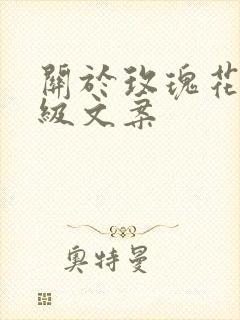 關於玫瑰花
級文案
奧特曼